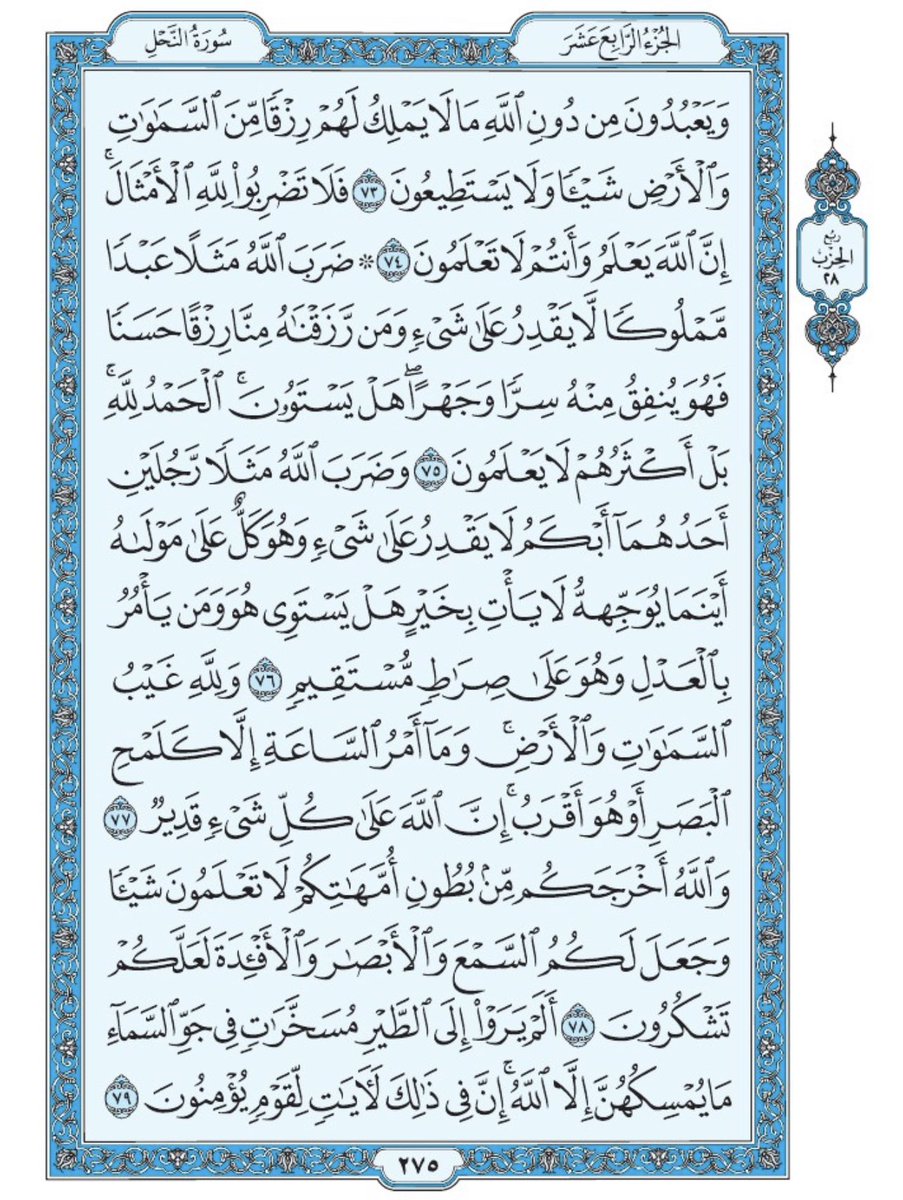 سُورَةُ النَّحْلِ
الجُزْءُ الرَّابِعَ عَشَرَ
وَيَعْبُدُونَ مِن دُونِ ٱللَّهِ مَا لَا يَمْلِكُ لَهُمْ رِزْقًا مِّنَ ٱلسَّمَٰوَٰتِ
وَٱلْأَرْضِ شَيْـًٔا وَلَا يَسْتَطِيعُونَ ٧٣ فَلَا تَضْرِبُوا۟ لِلَّهِ ٱلْأَمْثَالَ ۚ
إِنَّ ٱللَّهَ يَعْلَمُ وَأَنتُمْ لَا تَعْلَمُونَ ٧٤ ۞ ضَرَبَ ٱللَّهُ مَثَلًا عَبْدًا
مَّمْلُوكًا لَّا يَقْدِرُ عَلَىٰ شَىْءٍ وَمَن رَّزَقْنَٰهُ مِنَّا رِزْقًا حَسَنًا
فَهُوَ يُنفِقُ مِنْهُ سِرًّا وَجَهْرًا ۖ هَلْ يَسْتَوُۥنَ ۚ ٱلْحَمْدُ لِلَّهِ ۚ
بَلْ أَكْثَرُهُمْ لَا يَعْلَمُونَ ٧٥ وَضَرَبَ ٱللَّهُ مَثَلًا رَّجُلَيْنِ
أَحَدُهُمَآ أَبْكَمُ لَا يَقْدِرُ عَلَىٰ شَىْءٍ وَهُوَ كَلٌّ عَلَىٰ مَوْلَىٰهُ
أَيْنَمَا يُوَجِّههُّ لَا يَأْتِ بِخَيْرٍ هَلْ يَسْتَوِى هُوَ وَمَن يَأْمُرُ
بِٱلْعَدْلِ وَهُوَ عَلَىٰ صِرَٰطٍ مُّسْتَقِيمٍ ٧٦ وَلِلَّهِ غَيْبُ
ٱلسَّمَٰوَٰتِ وَٱلْأَرْضِ ۚ وَمَآ أَمْرُ ٱلسَّاعَةِ إِلَّا كَلَمْحِ
ٱلْبَصَرِ أَوْ هُوَ أَقْرَبُ ۚ إِنَّ ٱللَّهَ عَلَىٰ كُلِّ شَىْءٍ قَدِيرٌ ٧٧
وَٱللَّهُ أَخْرَجَكُم مِّنۢ بُطُونِ أُمَّهَٰتِكُمْ لَا تَعْلَمُونَ شَيْـًٔا
وَجَعَلَ لَكُمُ ٱلسَّمْعَ وَٱلْأَبْصَٰرَ وَٱلْأَفْـِٔدَةَ لَعَلَّكُمْ
تَشْكُرُونَ ٧٨ أَلَمْ يَرَوْا۟ إِلَى ٱلطَّيْرِ مُسَخَّرَٰتٍ فِى جَوِّ ٱلسَّمَآءِ
مَا يُمْسِكُهُنَّ إِلَّا ٱللَّهُ ۗ إِنَّ فِى ذَٰلِكَ لَـَٔايَٰتٍ لِّقَوْمٍ يُؤْمِنُونَ ٧٩
رُبْع
الحِزْب
٢٨
٢٧٥